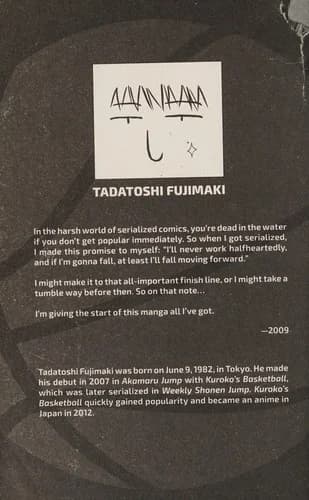 TADATOSHI FUJIMAKI
In the harsh world of serialized comics, you're dead in the water
if you don't get popular immediately. So when I got serialized,
I made this promise to myself: "I'll never work halfheartedly,
and if I'm gonna fall, at least I'll fall moving forward."
I might make it to that all-important finish line, or I might take a
tumble way before then. So on that note...
I'm giving the start of this manga all I've got.
—2009
Tadatoshi Fujimaki was born on June 9, 1982, in Tokyo. He made
his debut in 2007 in Akamaru Jump with Kuroko's Basketball,
which was later serialized in Weekly Shonen Jump. Kuroko's
Basketball quickly gained popularity and became an anime in
Japan in 2012.